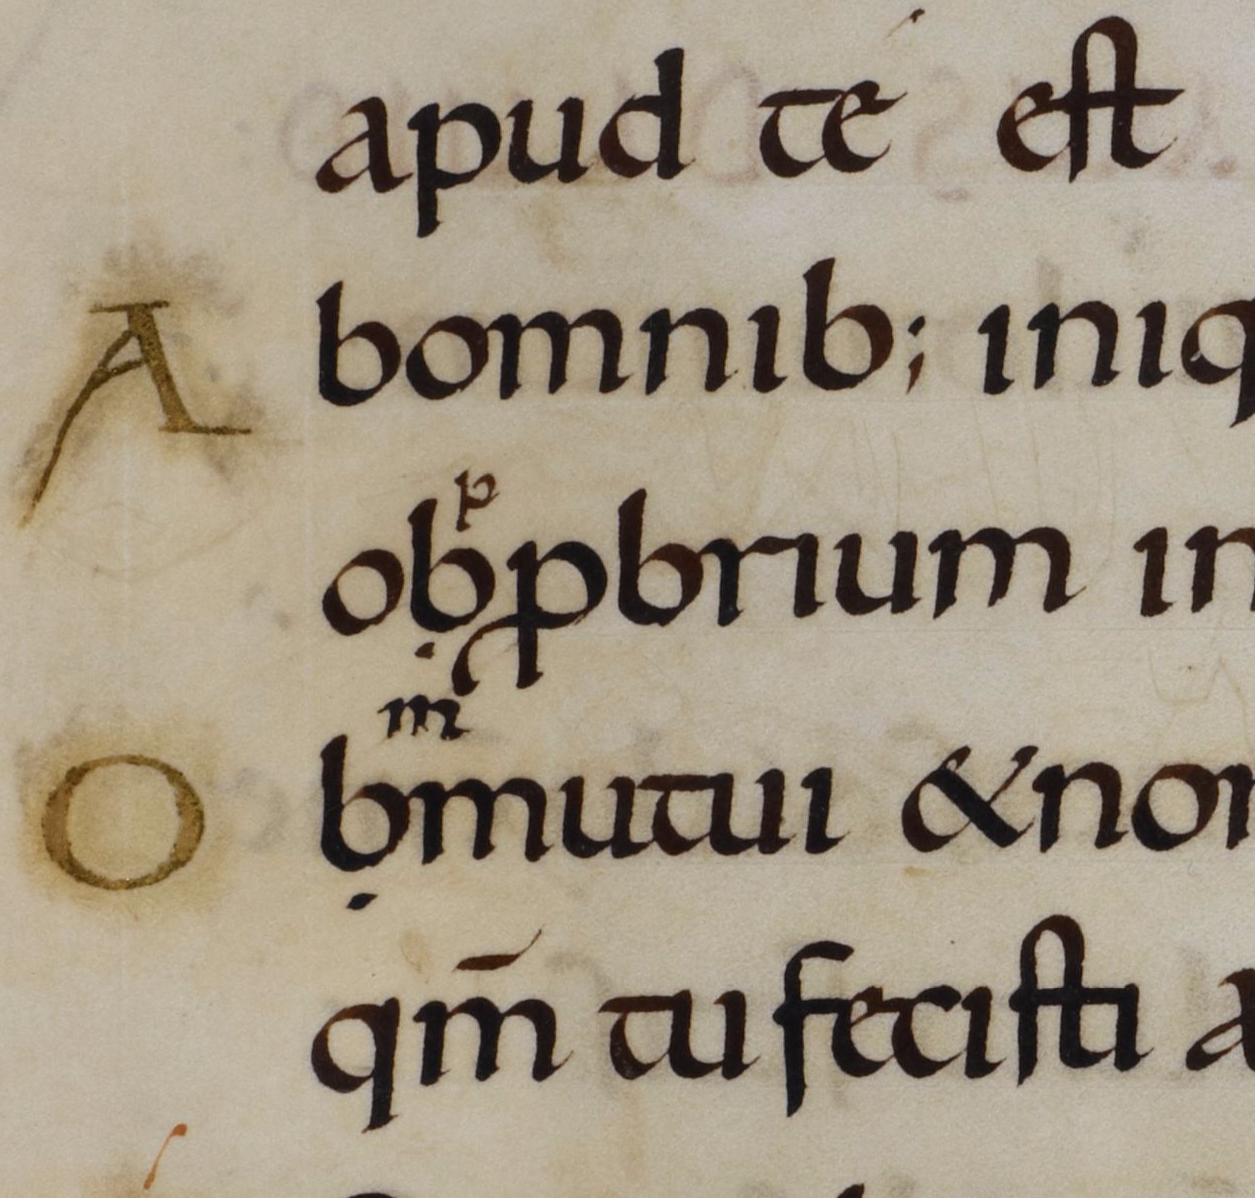 apud te est
A bomnib; iniq
p
obꝓbrium in
m
O bmutui & non
qm̄ tu fecisti a